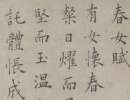 春女賦
有女懷春
粲日燿而
堅而玉溫
託體悵成